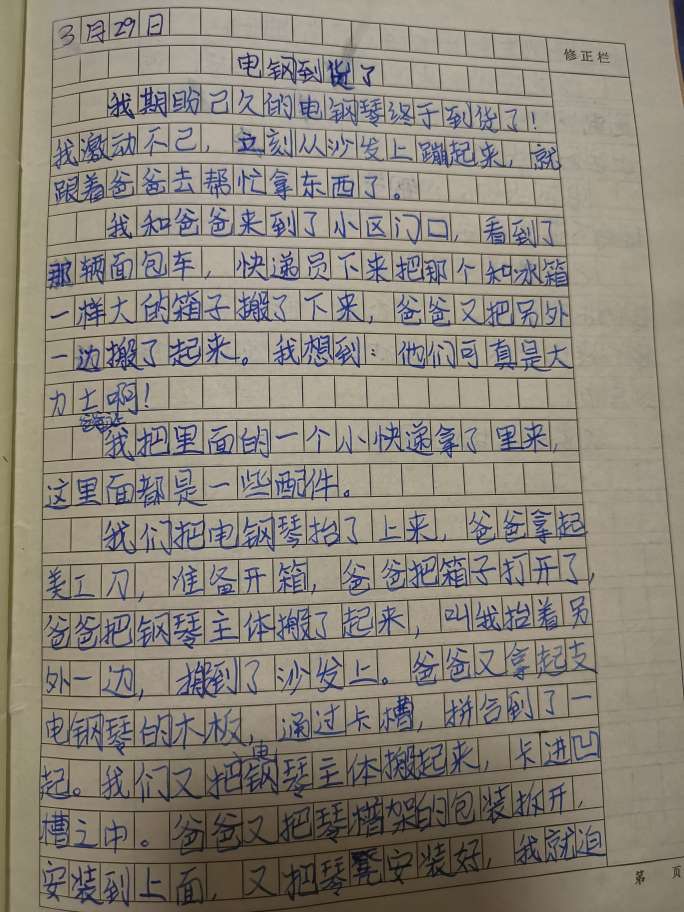 3月29日
修正栏
电钢到货了
我期盼已久的电钢琴终于到货了!
我激动不已,立刻从沙发上蹦起来,就
跟着爸爸去帮忙拿东西了。
我和爸爸来到了小区门口,看到了
那辆面包车,快递员下来把那个和冰箱
一样大的箱子搬了下来,爸爸又把另外
一边搬了起来。我想到:他们可真是大
力士啊!
我把里面的一个小快递拿了里来,
这里面都是一些配件。
我们把电钢琴抬了上来,爸爸拿起
美工刀,准备开箱,爸爸把箱子打开了,
爸爸把钢琴主体搬了起来,叫我抬着另
外一边,搬到了沙发上。爸爸又拿起支
电钢琴的木板,通过卡槽,拼合到了一
起。我们又把电钢琴主体搬起来,卡进凹
槽之中。爸爸又把琴谱架的包装拆开,
安装到上面,又把琴凳安装好,我就迫
第 页